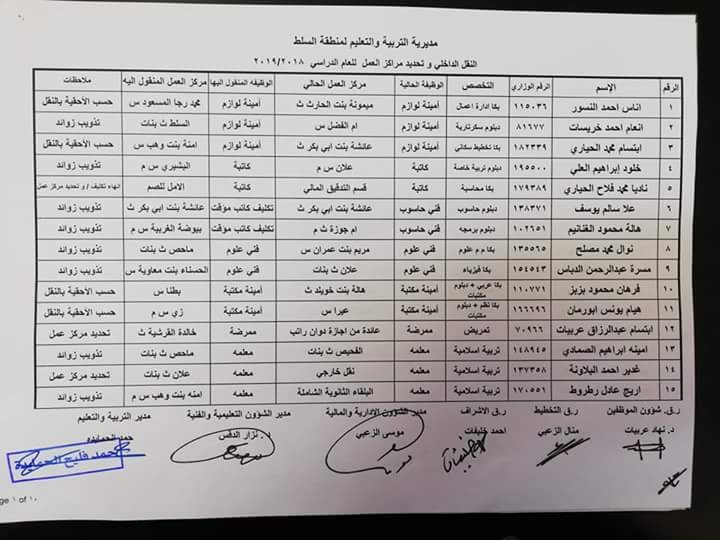 مديرية التربية والتعليم لمنطقة السلط
النقل الداخلي و تحديد مراكز العمل للعام الدراسي ٢٠١٩/٢٠١٨
الرقم الإسم الرقم الوزاري التخصص الوظيفة الحالية مركز العمل الحالي الوظيفه المنقول اليها مركز العمل المنقول اليه ملاحظات
١ ايناس احمد النسور ١١٥٠٣٦ بكا ادارة اعمال أمينة لوازم ميمونة بنت الحارث ث أمينة لوازم محمد رجا المسعود س حسب الأحقية بالنقل
٢ انعام احمد خريسات ٨١٦٧٧ دبلوم سكرتارية أمينة لوازم ام الفضل س أمينة لوازم السلط ث بنات تذويب زوائد
٣ ابتسام محمد الحياري ١٨٢٣٣٩ بكا تخطيط سكاني أمينة لوازم عائشة بنت ابي بكر ث أمينة لوازم امنة بنت وهب س حسب الأحقية بالنقل
٤ خلود إبراهيم العلي ١٩٥٥٠٠ دبلوم تربية خاصة كاتبة علان س م كاتبة البشيري س م تذويب زوائد
٥ ناديا محمد فلاح الحياري ١٧٩٣٨٩ بكا محاسبة كاتبة قسم التدقيق المالي كاتبة الامل للصم انهاء تكليف / و تحديد مركز عمل
٦ علا سالم يوسف ١٣٨٣٧١ دبلوم حاسوب فني حاسوب عائشة بنت ابي بكر ث تكليف كاتب مؤقت عائشة بنت ابي بكر ث تذويب زوائد
٧ هالة محمود الغنانيم ١٠٢٦٥١ دبلوم برمجه فني حاسوب ام جوزة ث م تكليف كاتب مؤقت بيوضة الغربية س م تذويب زوائد
٨ نوال محمد مصلح ١٣٥٥٦٥ بكا م م علوم فني علوم مريم بنت عمران س فني علوم ماحص ث بنات تذويب زوائد
٩ مسرة عبدالرحمن الدباس ١٥٤٥٤٣ بكا فيزياء فني علوم علان ث بنات فني علوم الحسناء بنت معاوية س تذويب زوائد
١٠ فرهان محمود بزبز ١١٠٧٧١ بكا عربي + دبلوم مكتبات أمينة مكتبة هالة بنت خويلد ث أمينة مكتبة بطنا س حسب الأحقية بالنقل
١١ هيام يونس ابورمان ١٦٦٦٩٦ بكا نظم + دبلوم مكتبات أمينة مكتبة عيرا س أمينة مكتبة زي س م حسب الأحقية بالنقل
١٢ ابتسام عبدالرزاق عربيات ٧٠٩٦٦ تمريض ممرضة عائدة من اجازة دوان راتب ممرضة خالدة القرشية ث تحديد مركز عمل
١٣ امينه ابراهيم الصمادي ١٤٨٩٤٥ تربية اسلامية معلمه الفحيص ث بنات معلمه ماحص ث بنات تذويب زوائد
١٤ غدير احمد البلاونة ١٣٧٣٥٨ تربية اسلامية معلمه نقل خارجي معلمه علان ث بنات تحديد مركز عمل
١٥ اريج عادل رطروط ١٧٠٥٥١ تربية اسلامية معلمه البلقاء الثانوية الشاملة معلمه امنه بنت وهب س م تذويب زوائد
ر.ق. شؤون الموظفين ر.ق التخطيط ر.ق الاشراف مدير الشؤون الادارية والمالية مدير الشؤون التعليمية والفنية مدير التربية والتعليم
د. نهاد عربيات منال الزعبي احمد خليفات موسى الزعبي د. نزار الدقس حمد الحمايده
حمد فليح الحمايدة
Page ١ of ١٠